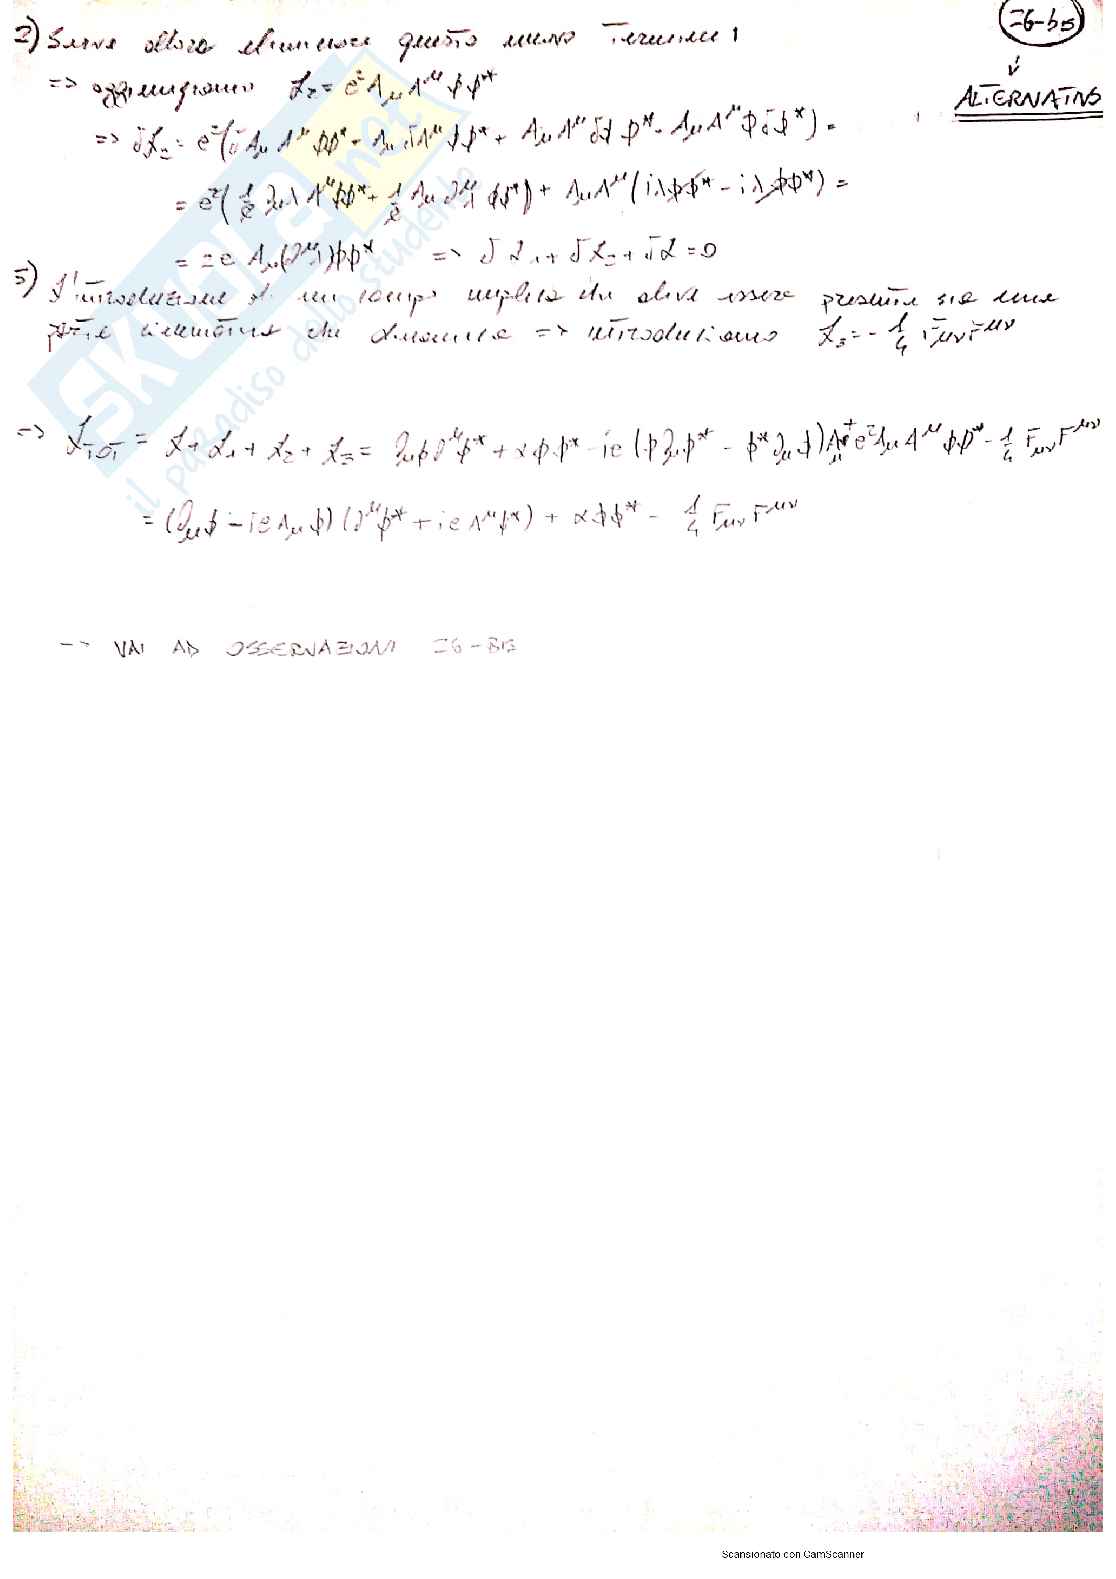 26-bis
ALTERNATIVO
2) Serve allora eliminare questo nuovo termine!
=> aggiungiamo ℒ₂ = e² A_μ A^μ φφ*
=> δℒ₂ = e²(δA_μ A^μ φφ* + A_μ δA^μ φφ* + A_μ A^μ δφ φ* + A_μ A^μ φ δφ*) =
= e²(1/e ∂_μλ A^μ φφ* + 1/e A_μ ∂^μλ φφ*) + A_μ A^μ (iλφφ* - iλφφ*) =
= 2e A_μ(∂^μλ)φφ* => δℒ₁ + δℒ₂ + δℒ = 0
3) L'introduzione di un campo implica che deve essere presente sia una
parte cinematica che dinamica => introduciamo ℒ₃ = - 1/4 F_μν F^μν
=> ℒ_TOT = ℒ + ℒ₁ + ℒ₂ + ℒ₃ = ∂_μφ ∂^μφ* + αφφ* - ie (φ∂_μφ* - φ*∂_μφ)A^μ + e² A_μ A^μ φφ* - 1/4 F_μν F^μν
= (∂_μφ - ieA_μφ)(∂^μφ* + ieA^μφ*) + αφφ* - 1/4 F_μν F^μν
-> VAI AD OSSERVAZIONI 26-BIS
SKUOLA.net
il paradiso dello studente
Scansionato con CamScanner